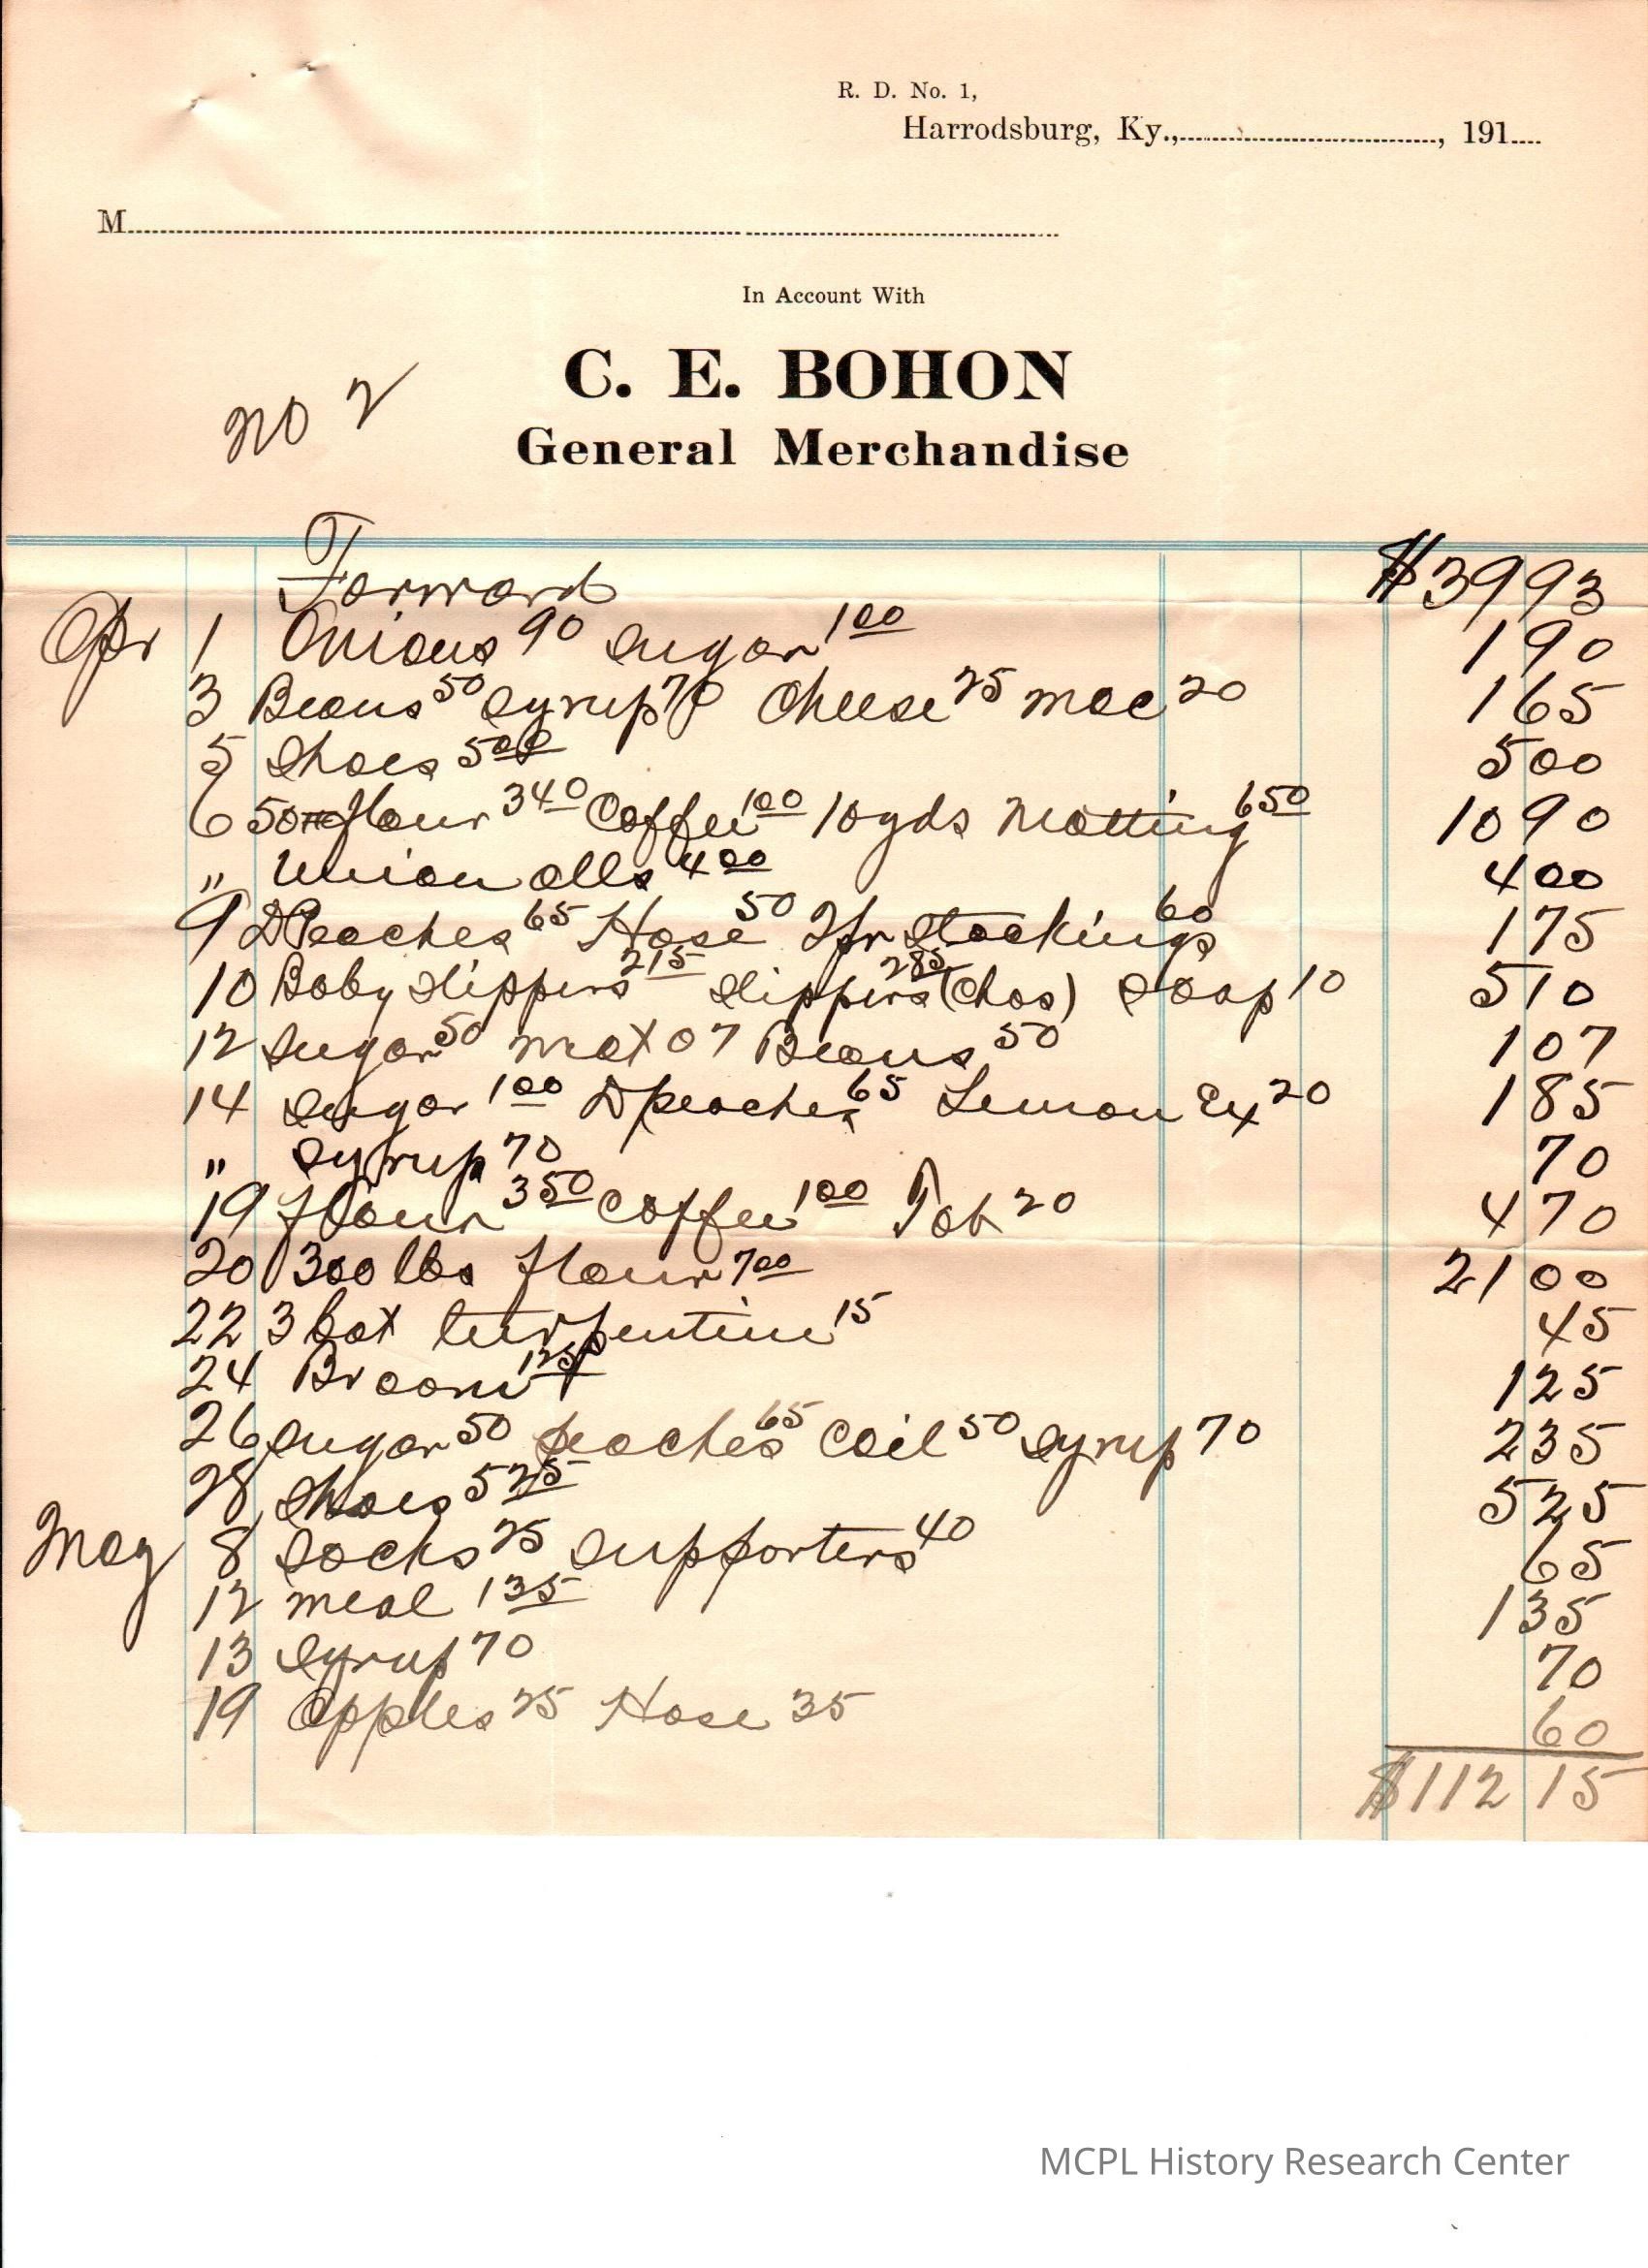 R. D. No. 1,
Harrodsburg, Ky.,............................, 191....
M................................................................
In Account With
C. E. BOHON
No 2
General Merchandise
Forward $39 93
Apr 1 Onions 90 Sugar 1 00 1 90
3 Beans 50 Syrup 70 Cheese 25 Mac 20 1 65
5 Shoes 5 00 5 00
6 50# flour 3 40 Coffee 1 00 10 yds Matting 6 50 10 90
" Union alls 4 00 4 00
9 D Peaches 65 Hose 50 2 pr Stockings 60 1 75
10 Baby Slippers 2 15 Slippers 2 85 (Chas) Soap 10 5 10
12 Sugar 50 Mat 07 Beans 50 1 07
14 Sugar 1 00 D peaches 65 Lemon Ex 20 1 85
" Syrup 70 70
19 flour 3 50 Coffee 1 00 Tob 20 4 70
20 300 lbs flour 7 00 21 00
22 3 bot turpentine 15 45
24 Broom 1 25 1 25
26 Sugar 50 peaches 65 Coil 50 Syrup 70 2 35
28 Shoes 5 25 5 25
May 8 Socks 25 Supporters 40 65
12 meal 1 35 1 35
13 Syrup 70 70
19 Apples 25 Hose 35 60
$112 15
MCPL History Research Center